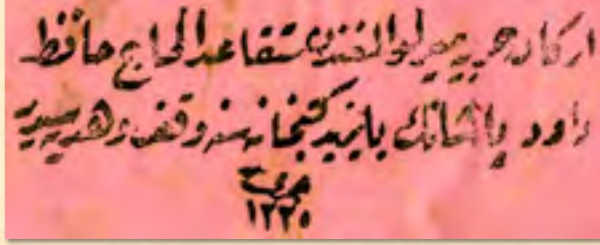 اركان حربيه ميرلوالغندن متقاعد الحاج حافظ
داود پاشانك بايزيد كتبخانه سنه وقف و هديه سيدر